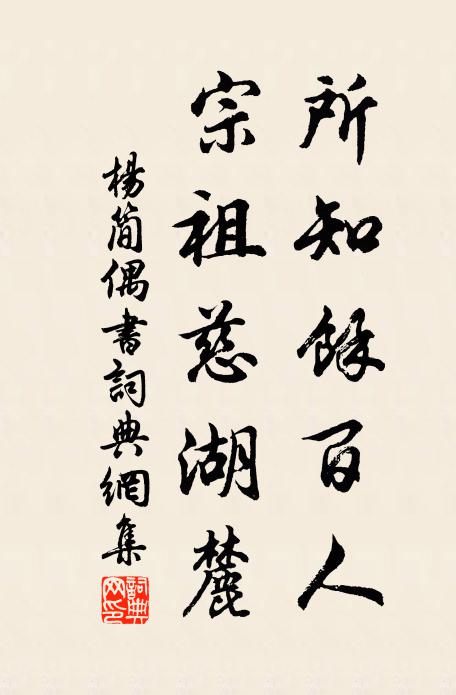 所知餘百人
宗祖慈湖麓
楊簡偶書詞典網集
詞典网印